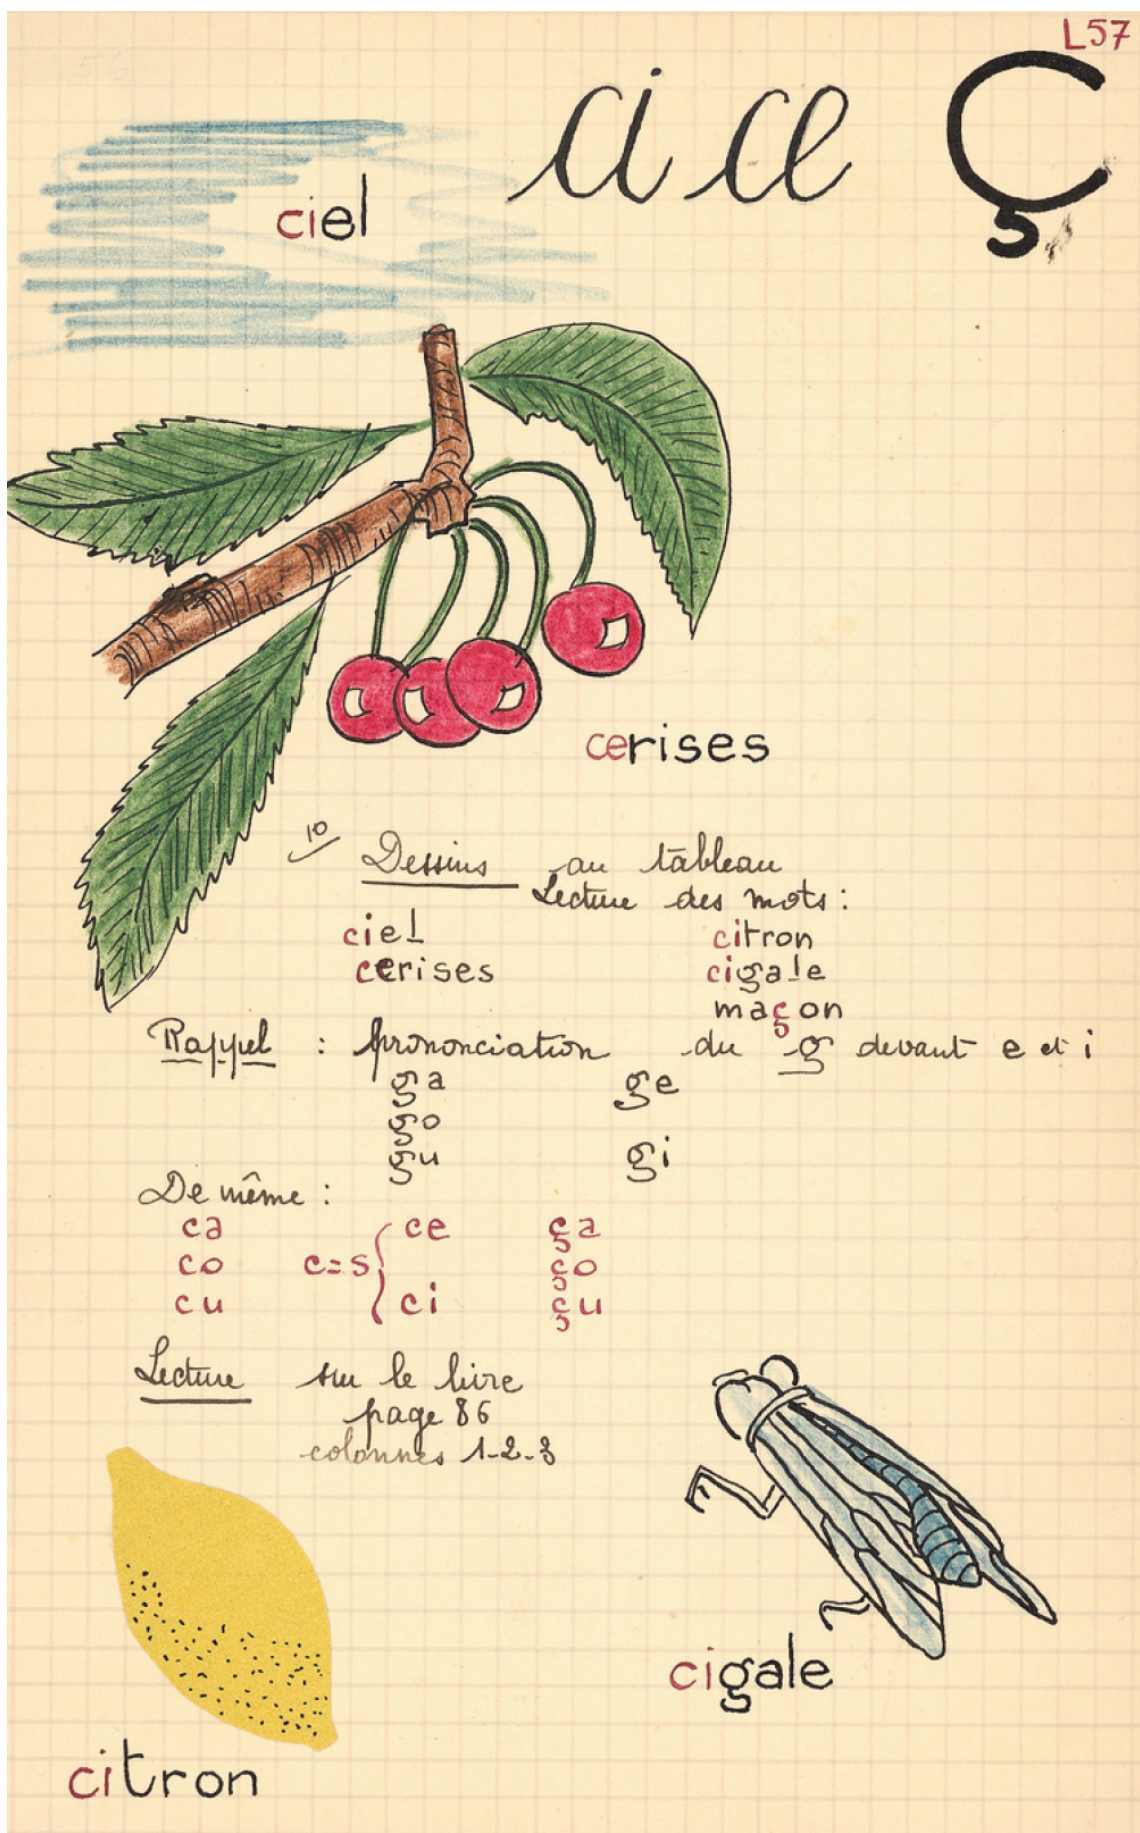 L57
ci ce Ç
ciel
cerises
10
Dessins au tableau
Lecture des mots :
ciel citron
cerises cigale
maçon
Rappel : prononciation du g devant e et i
ga ge
go
gu gi
De même :
ca ce ça
co c=s ço
cu ci çu
Lecture sur le livre
page 86
colonnes 1-2-3
cigale
citron